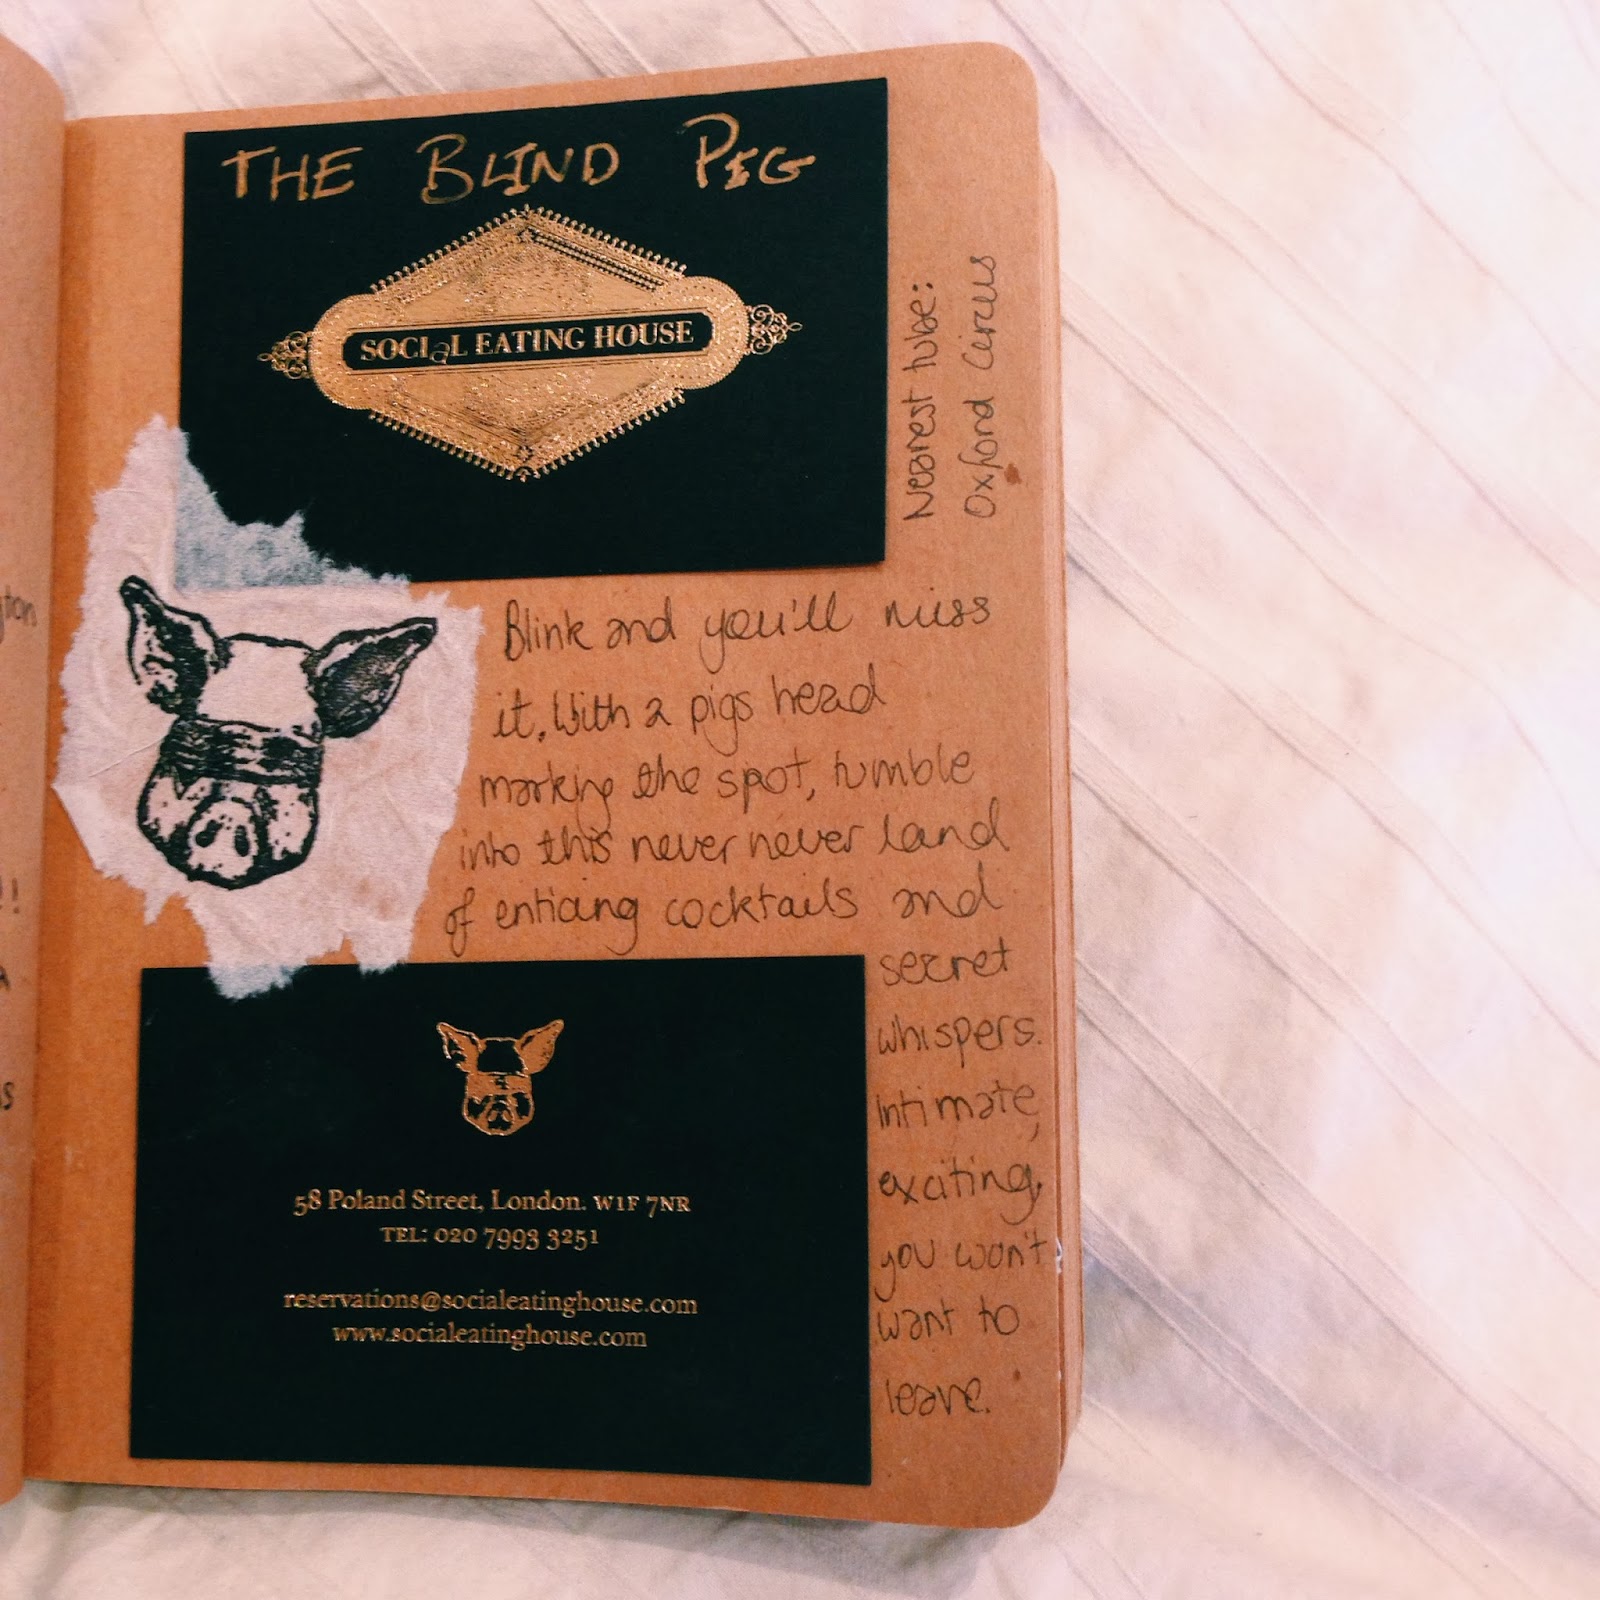 THE BLIND PIG
SOCIaL EATING HOUSE
Nearest tube:
Oxford Circus
Blink and you'll miss
it. With a pigs head
marking the spot, tumble
into this never never land
of enticing cocktails and
secret
whispers.
Intimate,
exciting,
you won't
want to
leave.
58 Poland Street, London. W1F 7NR
TEL: 020 7993 3251
reservations@socialeatinghouse.com
www.socialeatinghouse.com